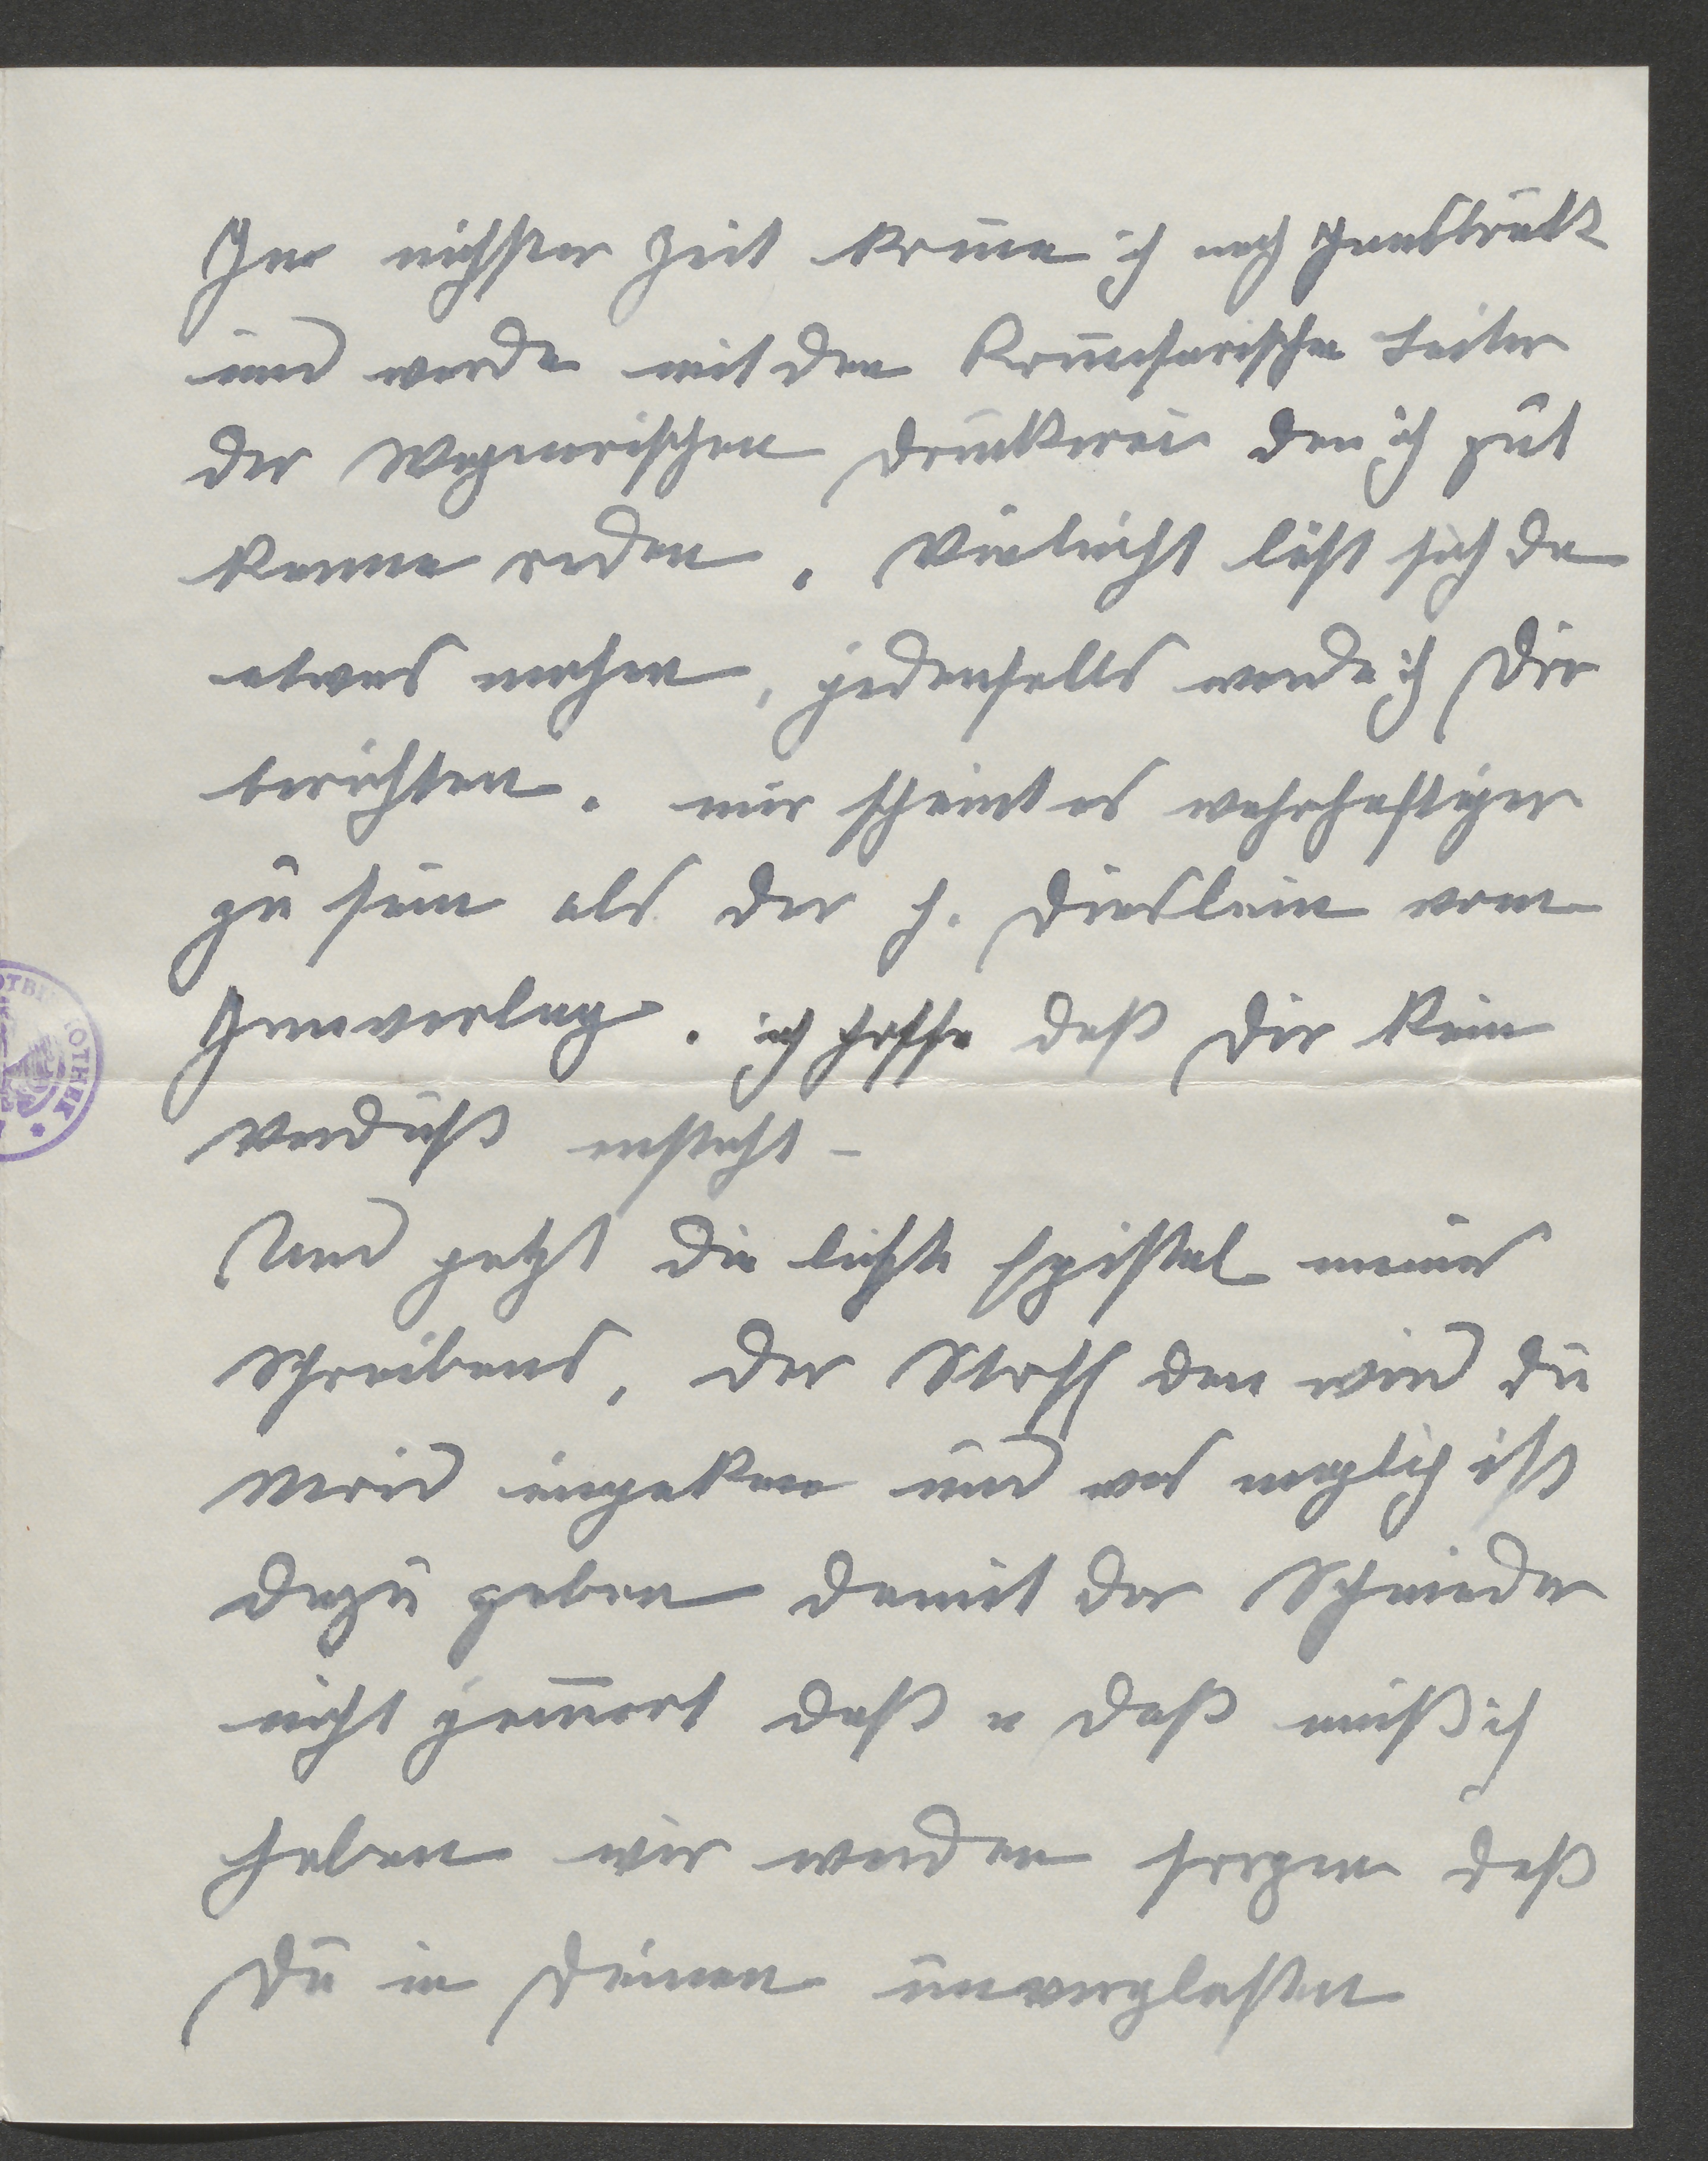 In nächster Zeit kom̅e ich nach Innsbruck
und werde mit den Kom̅isarischen Leiter
der Wagnerischen Druckerei den ich gut
kenne reden. Vieleicht läst sich da
etwas machen, jedenfalls werde ich Dir
berichten. mir scheint es wahrhaftiger
zu sein als der H. Dierlein vom
Innverlag. ich hoffe daß Dir kein
Verduß ensteht –
Und jetzt die letzte Epistel meines
Schreibens, der Stoff den wird du
Moid eingeken und was möglich ist
dazu geben damit der Schneider
nicht jam̅ert daß u daß muß ich
haben wir werden sorgen daß
Du in Deinen unverglasten
OTHEK